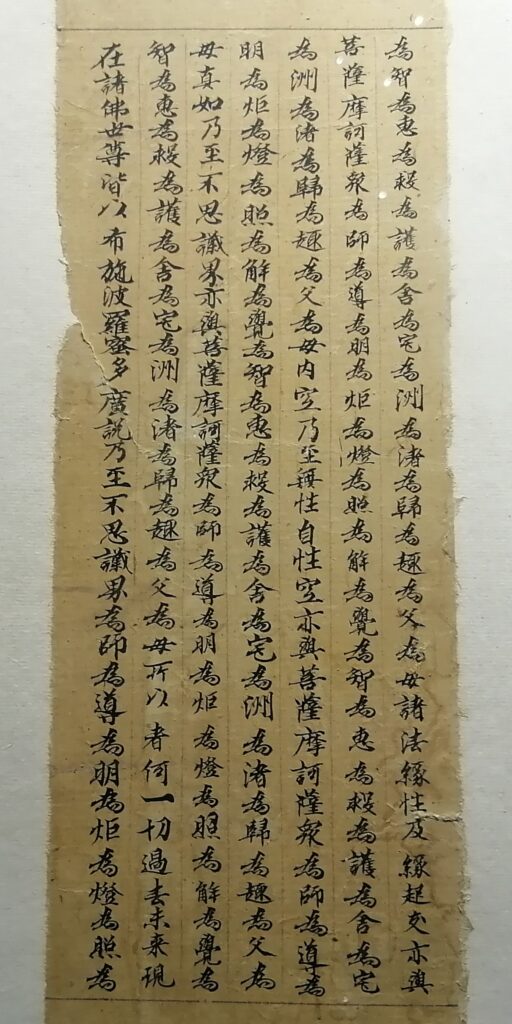 為智為惠為救為護為舍為宅為洲為渚為歸為趣為父為母諸法緣性及緣起支亦與
菩薩摩訶薩眾為師為導為明為炬為燈為照為解為覺為智為惠為救為護為舍為宅
為洲為渚為歸為趣為父為母內空乃至無性自性空亦與菩薩摩訶薩眾為師為導為
明為炬為燈為照為解為覺為智為惠為救為護為舍為宅為洲為渚為歸為趣為父為
母真如乃至不思議界亦與菩薩摩訶薩眾為師為導為明為炬為燈為照為解為覺為
智為惠為救為護為舍為宅為洲為渚為歸為趣為父為母所以者何一切過去未來現
在諸佛世尊皆以布施波羅蜜多廣說乃至不思議界為師為導為明為炬為燈為照為